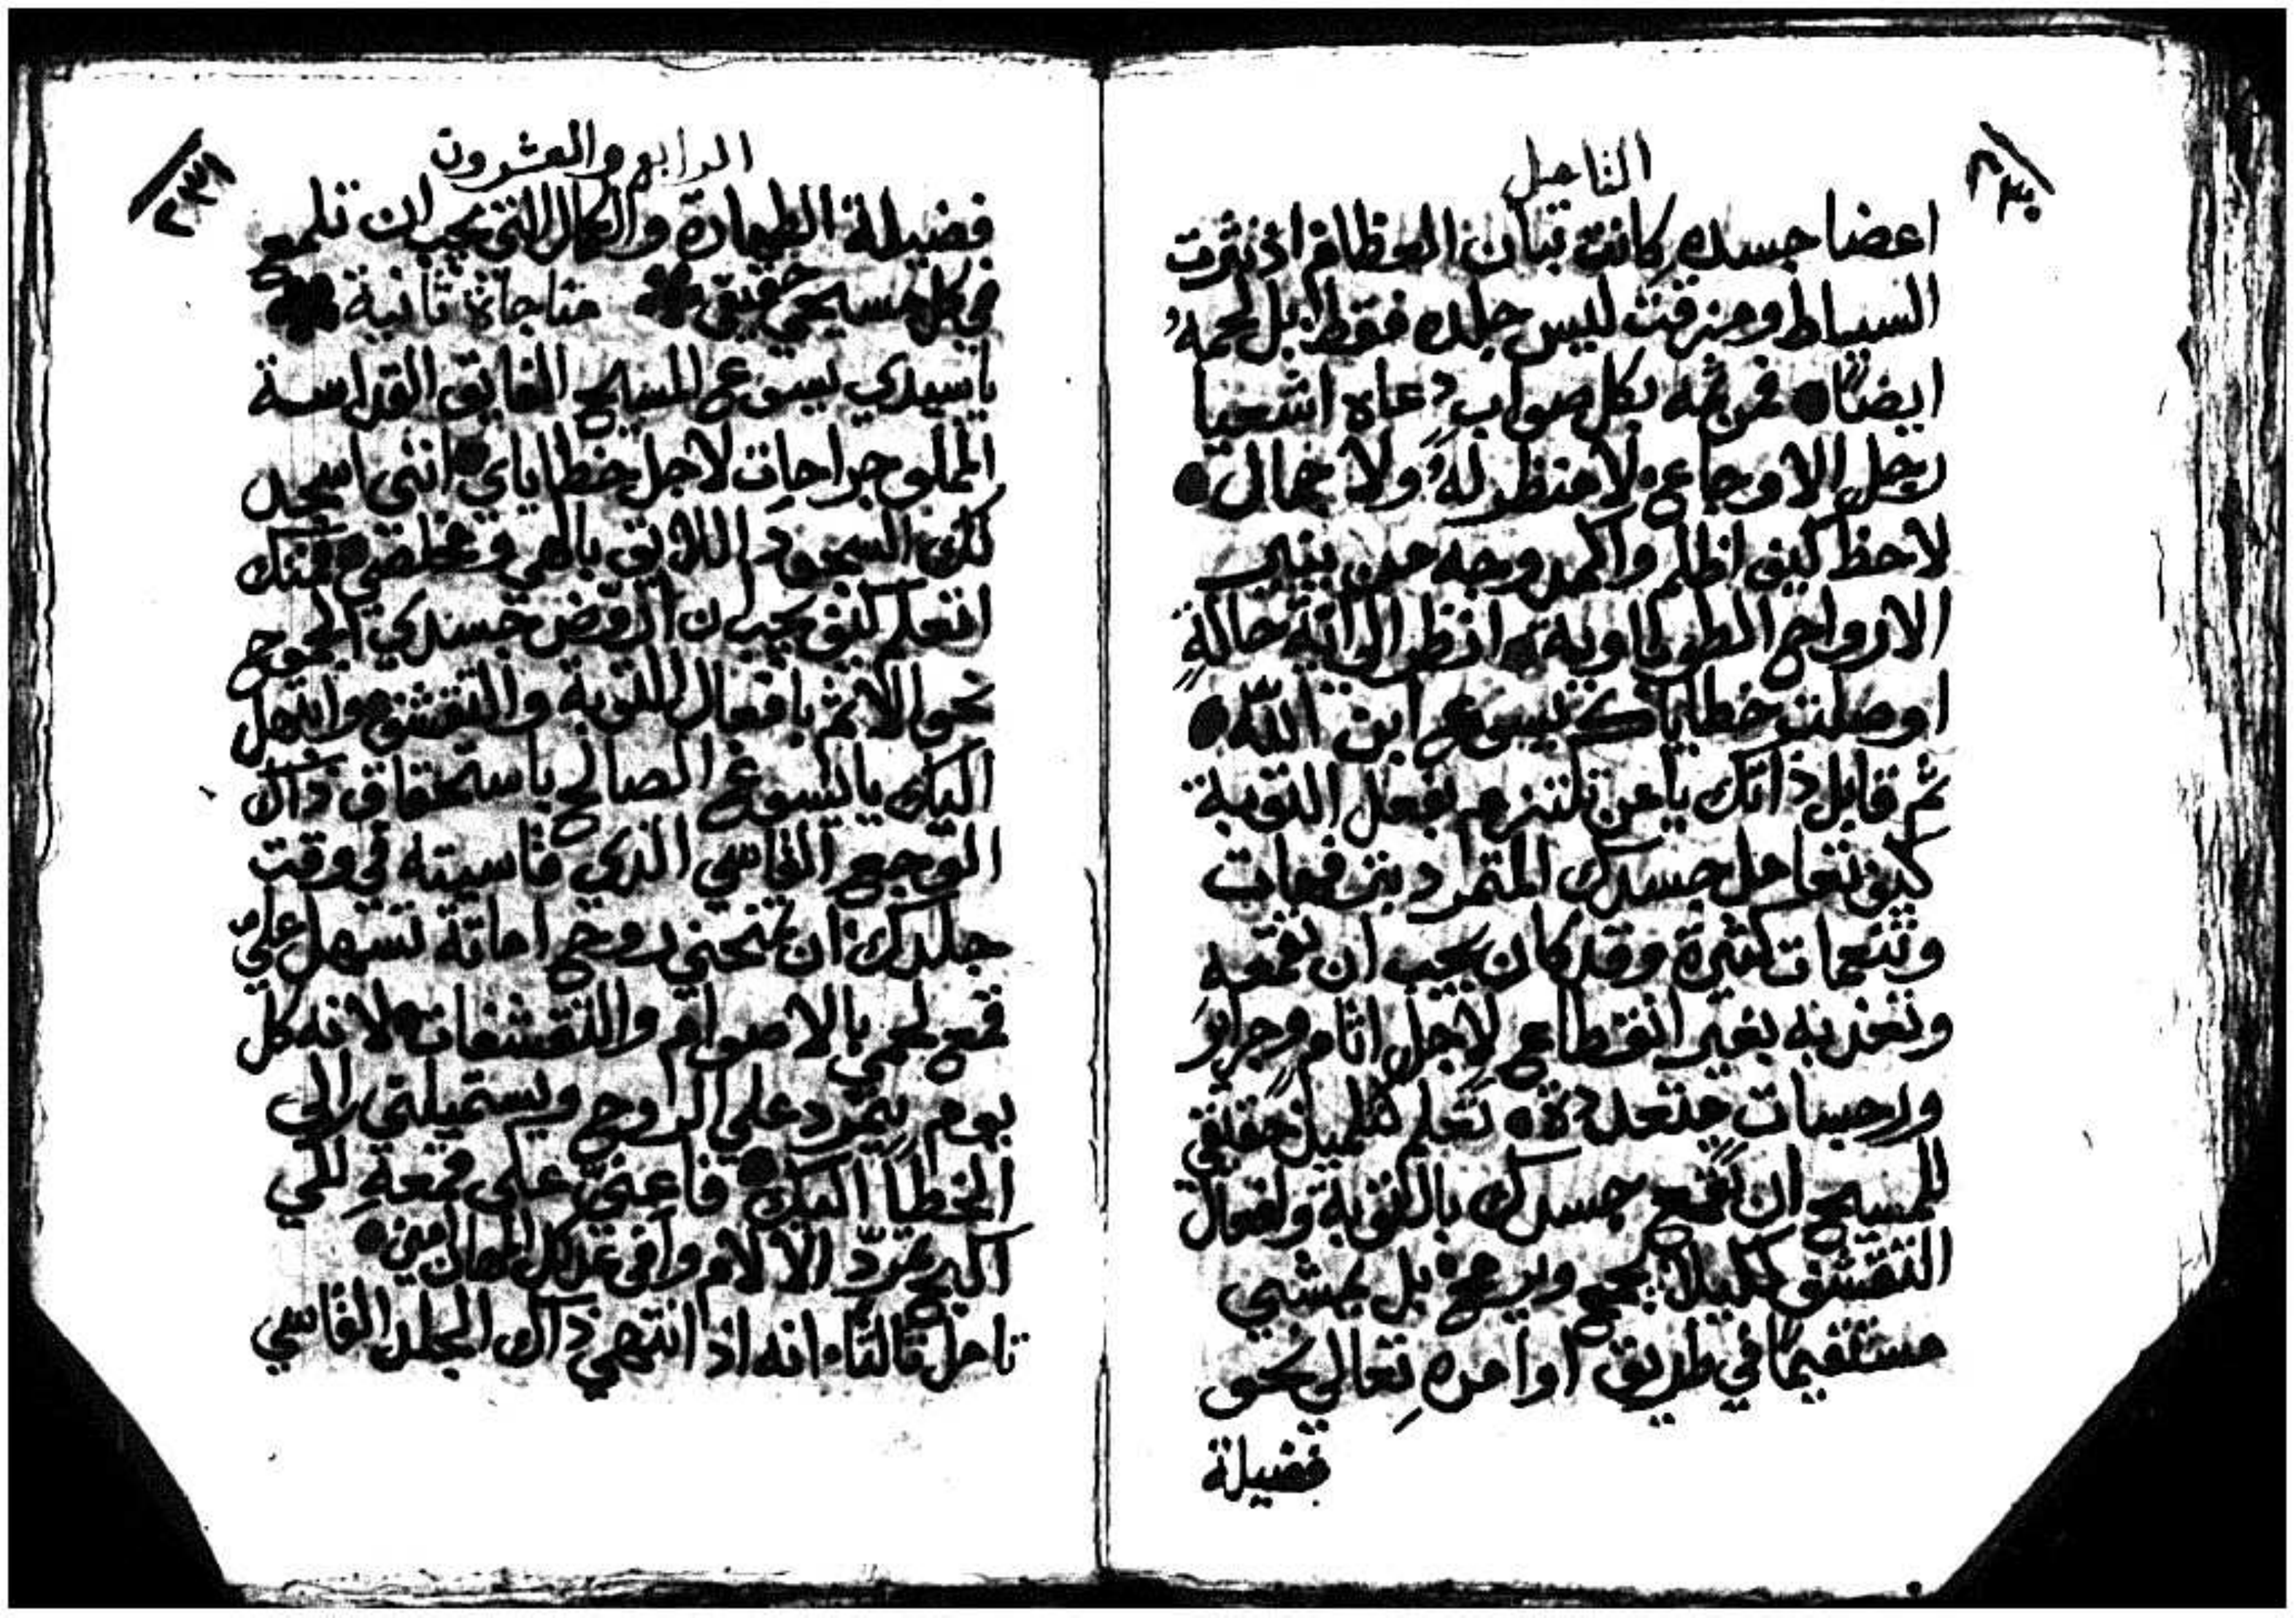 التاميل
٢٣٠
اعضا جسده كانت تبان العظام اذ نثرت
السياط ومزقت ليس جلده فقط بل لحمه
ايضًا فمن ثمه بكل صواب دعاه اشعيا
رجل الاوجاع لا منظر له ولا جمال
لاحظ كيف اظلم واكمد وجه من ينير
الارواح الطوباوية انظر الى اية حالة
اوصلت خطاياك يسوع ابن الله
ثم قابل ذاتك يا من تلتزم بفعل التوبة
كيف تتعامل جسدك المتمرد بترفهات
وتنعمات كثيرة وقد كان يجب ان تقمعه
وتعذبه بغير انقطاع لاجل اثام وجراير
ورجسات متعددة تعلم كتلميذ حقيقي
للمسيح ان تقمع جسدك بالتوبة وافعال
التقشف لكيلا يجمح ويرمح بل يمشي
مستقيمًا في طريق اوامره تعالى نحو
فضيلة
الرابع والعشرون
٢٣١
فضيلة الطهارة والكمال التي يجب ان تلمع
في كل مسيحي حقيقي مناجاة ثانية
يا سيدي يسوع المسيح الفايق القداسة
المملو جراحات لاجل خطاياي انني اسجد
لك السجود اللايق بالهي ومخلصي فمنك
اتعلم كيف يجب ان اروض جسدي الجموح
نحو الاثم بافعال التوبة والتقشف وابتهل
اليك يا يسوع الصالح باستحقاق ذاك
التوجع القاسي الذي قاسيته في وقت
جلدك ان تمنحني روح اماتة تسهل علي
قمع لحمي بالاصوام والتقشفات لانه كل
يوم يتمرد على الروح ويستميلني الى
الخطا اليك فاعني على قمعه لكي
اكبح تمرد الالام وافي عدلك المهان امين
تامل ثالثا انه اذ انتهى ذاك الجلد القاسي